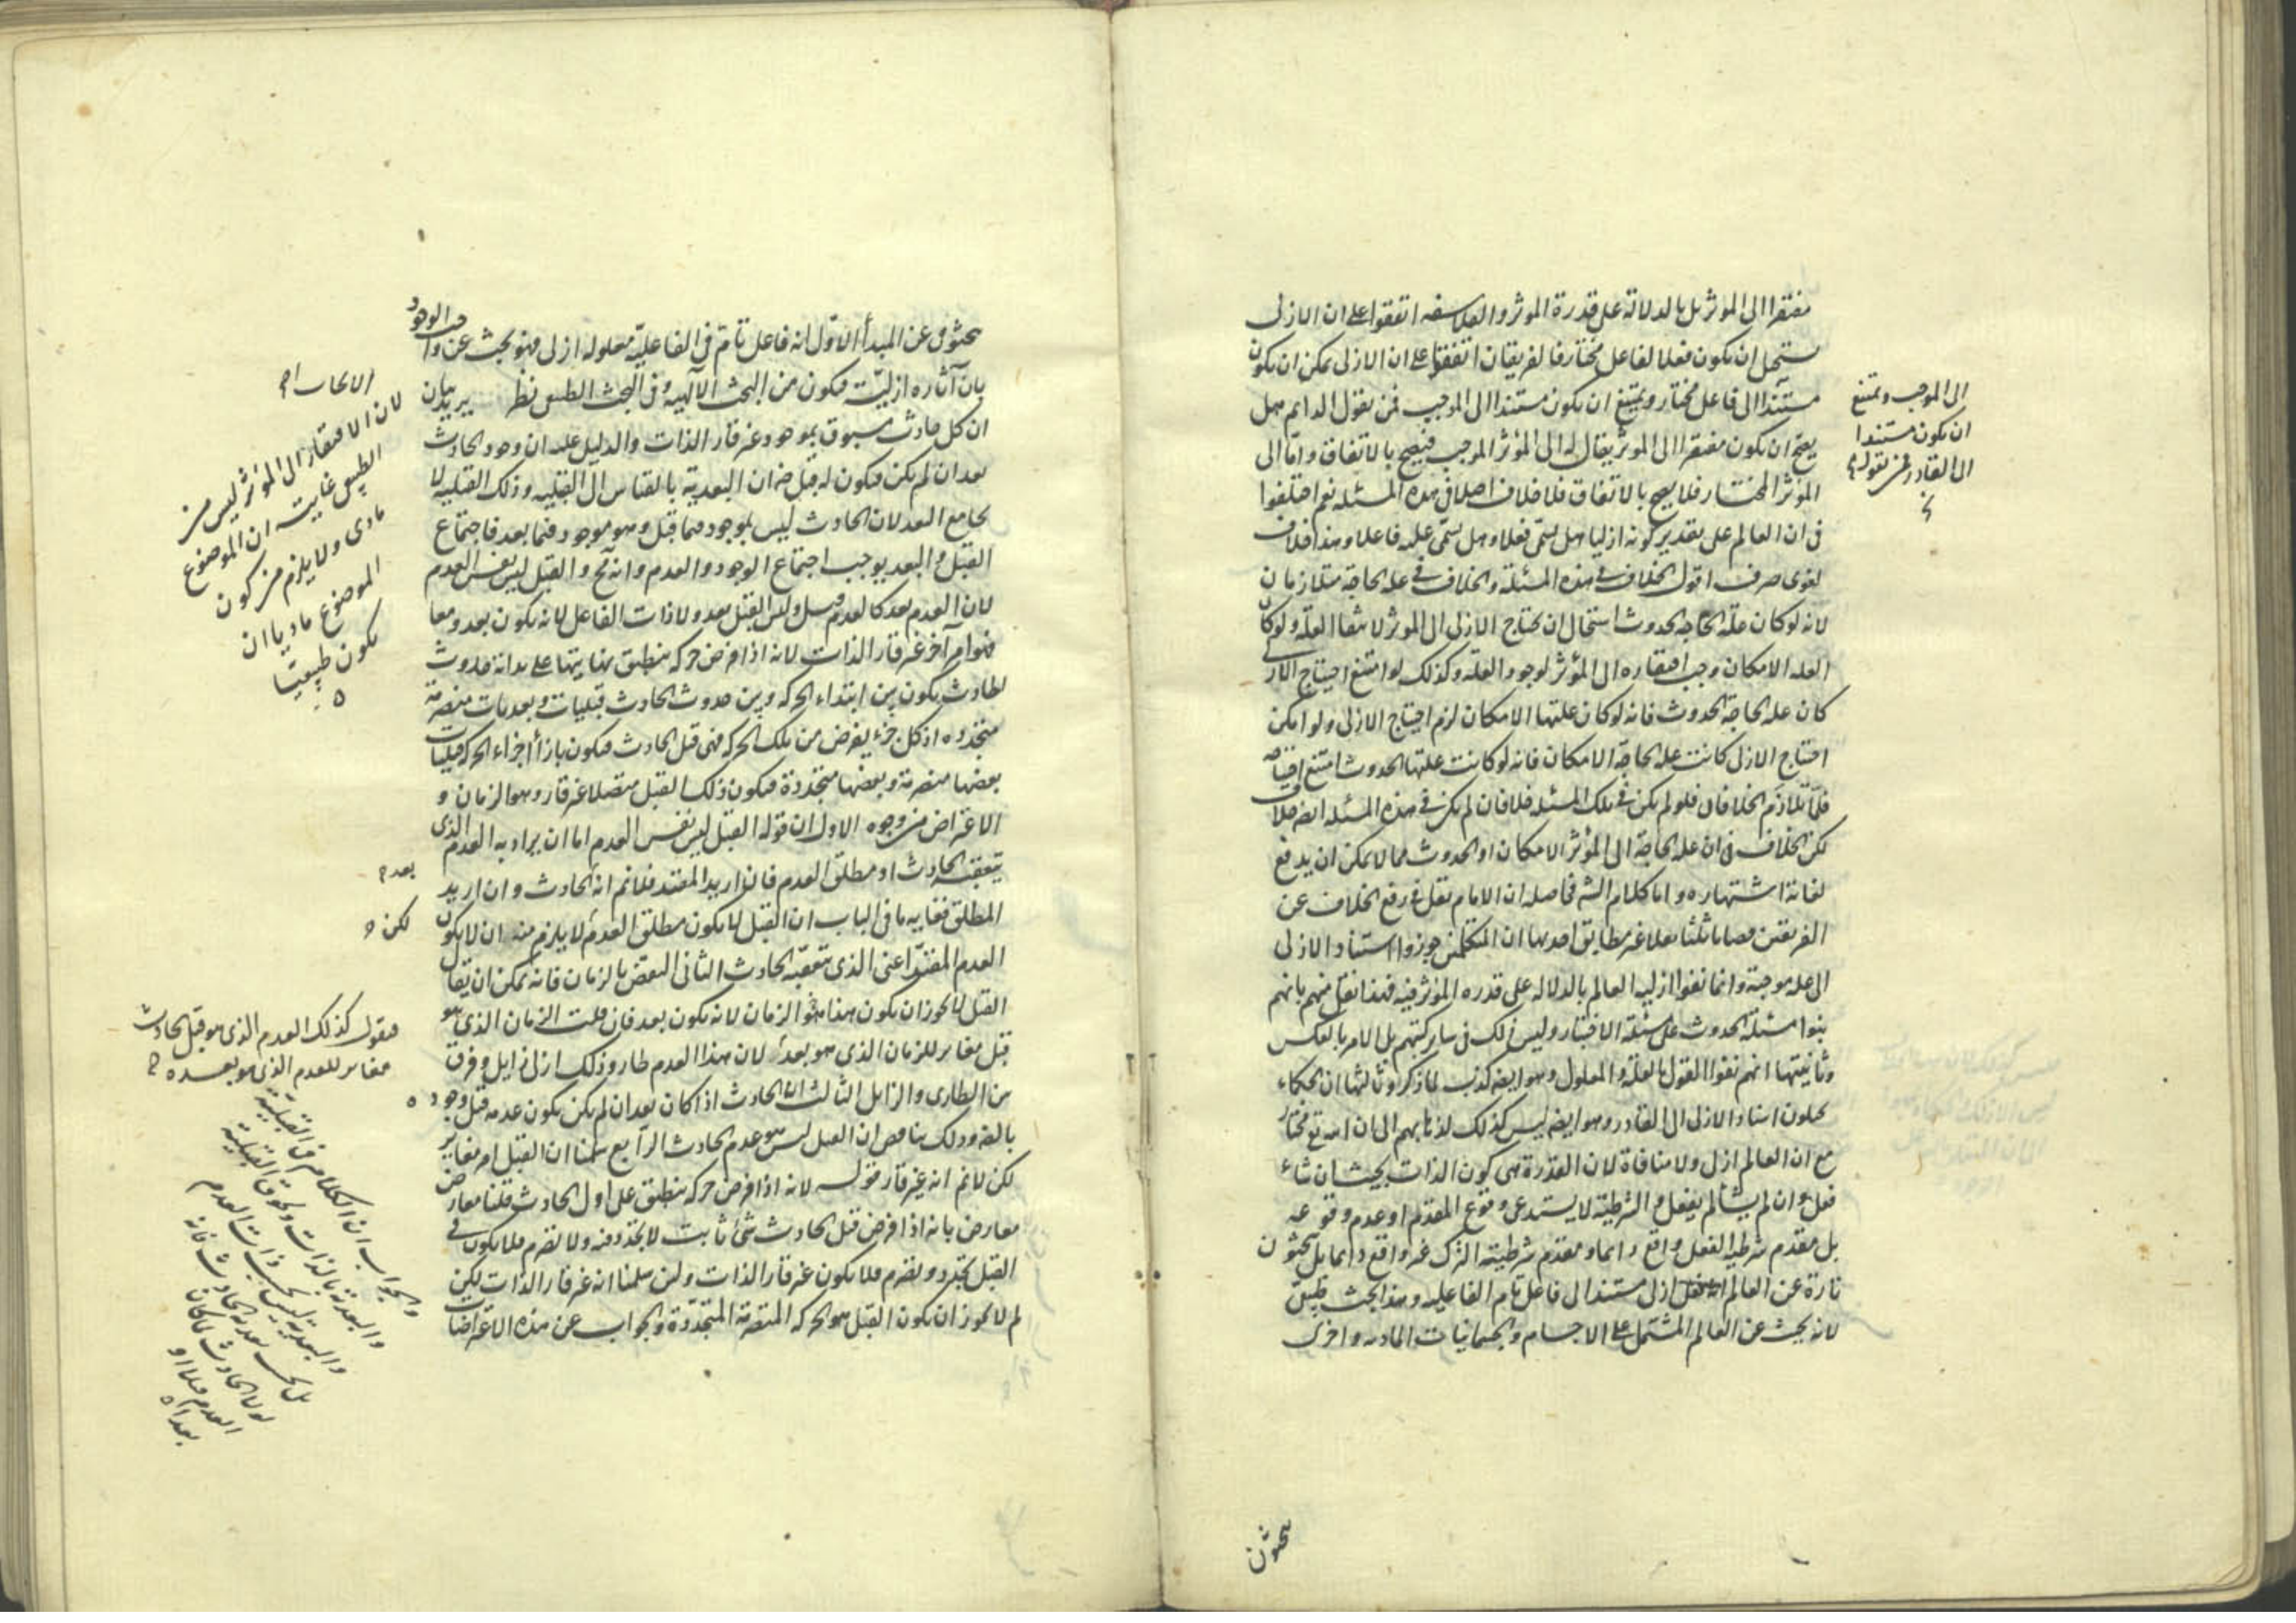 مفتقرا الى الموثر بل بالدلالة على قدرة الموثر والفلاسفه اتفقوا على ان الازلى
يستحيل ان يكون فعلا لفاعل مختار فالفريقان اتفقوا على ان الازلى يمكن ان يكون
مستندا الى فاعل مختار ويمتنع ان يكون مستندا الى الموجب فمن يقول الدايم هل
يصح ان يكون مفتقرا الى الموثر يقال له الى المؤثر الموجب فيصح بالاتفاق واما الى
المؤثر المختار فلا يصح بالاتفاق فلا خلاف اصلا فى هذه المسئله نعم اختلفوا
فى ان العالم على تقدير كونه ازليا هل يسمى فعلا وهل يسمى علته فاعلا وهذا خلاف
لغوى صرف اقول الخلاف فى هذه المسئلة والخلاف فى علة الحاجة متلازمان
لانه لو كان علة الحاجة الحدوث استحال ان يحتاج الازلى الى الموثر لانتفا العلة ولو كان
العله الامكان وجب افتقاره الى المؤثر لوجود العلة وكذلك لو امتنع احتياج الازلى
كان علة الحاجة الحدوث فانه لو كان علتها الامكان لزم احتياج الازلى ولو امكن
احتياج الازلى كانت علة الحاجة الامكان فانه لو كانت علتها الحدوث امتنع احتياجه
فلما تلازم الخلافان فلو لم يكن فى تلك المسئله خلاف لم يكن فى هذه المسئله ايضا خلاف
لكن الخلاف فى ان علة الحاجة الى المؤثر الامكان او الحدوث مما لا يمكن ان يدفع
لغاية اشتهاره واما كلام الش فحاصله ان الامام نقل فى رفع الخلاف عن
الفريقين قضايا ثلثا نقلا غير مطابق احديها ان المتكلمين جوزوا استناد الازلى
الى علة موجبة وانما نفوا ازلية العالم بالدلالة على قدره المؤثر فيه فهذا نقل منهم بانهم
بنوا مسئلة الحدوث على مسئلة الاختيار وليس ذلك فى ساير كتبهم بل الامر بالعكس
وثانيتها انهم نفوا القول بالعلة والمعلول وهو ايضا كذب لما ذكر وثالثها ان الحكماء
يحيلون اسناد الازلى الى القادر وهو ايضا ليس كذلك لذهابهم الى ان الله تع مختار
مع ان العالم ازلى ولا منافاة لان القدرة هى كون الذات بحيث ان شاء
فعل وان لم يشأ لم يفعل والشرطية لا يستدعى وقوع المقدم او عدم وقوعه
بل مقدم شرطية الفعل واقع دايما ومقدم شرطية الترك غير واقع دايما بل يبحثون
تارة عن العالم ازلى مستند الى فاعل تام الفاعلية وهذا البحث طبيعى
لانه يبحث عن العالم المشتمل على الاجسام والجسمانيات المادية واخرى
الى الموجب ويمتنع
ان يكون مستندا
الى القادر فمن يقول
يبحثون
يبحثون عن المبدأ الاول انه فاعل تام فى الفاعلية معلوله ازلى فهو بحث عن واجب الوجود
بان آثاره ازلية فيكون من البحث الالهيه وفى البحث الطبيعى نظر يريد بيان
ان كل حادث مسبوق بموجود غير قار الذات والدليل عليه ان وجود الحادث
بعد ان لم يكن فيكون له قبل ضرورة ان البعدية بالقياس الى القبليه وذلك القبليه لا
يجامع البعد لان الحادث ليس بموجود فيما قبل وهو موجود فيما بعد فاجتماع
القبل والبعد يوجب اجتماع الوجود والعدم وانه مح والقبل ليس نفس العدم
لان العدم بعد كالعدم قبل وليس القبل بعد ولا ذات الفاعل لانه يكون بعد ومعا
فهو امر آخر غير قار الذات لانه اذا فرض حركة منطبق نهايتها على بداية حدوث
لحادث يكون بين ابتداء الحركه وبين حدوث الحادث قبليات وبعديات متصرمة
متجدده اذ كل جزء يفرض من تلك الحركة فهى قبل الحادث فيكون بازاء اجزاء الحركة قبليات
بعضها متصرمة وبعضها متجددة فيكون ذلك القبل متصلا غير قار وهو الزمان و
الاعتراض من وجوه الاول ان قوله القبل ليس نفس العدم اما ان يراد به العدم الذى
يتعقبه الحادث او مطلق العدم فان اريد المقيد فلانم انه الحادث وان اريد
المطلق فغاية ما فى الباب ان القبل لا يكون مطلق العدم لا يلزم منه ان لا يكون
العدم المقيد اعنى الذى يتعقبه الحادث الثانى النقض بالزمان فانه يمكن ان يقال
القبل لا يجوز ان يكون هذا هو الزمان لانه يكون بعد فان قلت الزمان الذى هو
قبل مغاير للزمان الذى هو بعد لان هذا العدم طار وذلك ازلى زايل وفرق
بين الطارى والزايل الثالث ان الحادث اذا كان بعد ان لم يكن يكون عدمه قبل وجوده
بالضرورة وذلك يناقض ان القبل ليس هو عدم الحادث الرابع سلمنا ان القبل امر مغاير
لكن لانم انه غير قار قوله لانه اذا فرض حركة منطبق على اول الحادث قلنا معارض
معارض بانه اذا فرض قبل الحادث شئ ثابت لا تجدد فيه ولا تصرم فلا يكون فى
القبل تجدد وتصرم فلا يكون غير قار الذات ولئن سلمنا انه غير قار الذات لكن
لم لا يجوز ان يكون القبل هو الحركه المتصرمة المتجددة والجواب عن هذه الاعتراضات
لان الافتقار الى المؤثر ليس من
الطبيعى غايته ان الموضوع
مادى ولا يلزم من كون
الموضوع ماديا ان
يكون طبيعيا
بعد
لكن
فنقول كذلك العدم الذى هو قبل الحادث
مغاير للعدم الذى هو بعده
والجواب ان الكلام فى القبلية
والبعدية بالذات ولحوق القبلية
والبعدية ليس بحسب ذات العدم
بل بحسب الحادث فانه
لولا الحادث لما كان
العدم قبلا او
بعدا